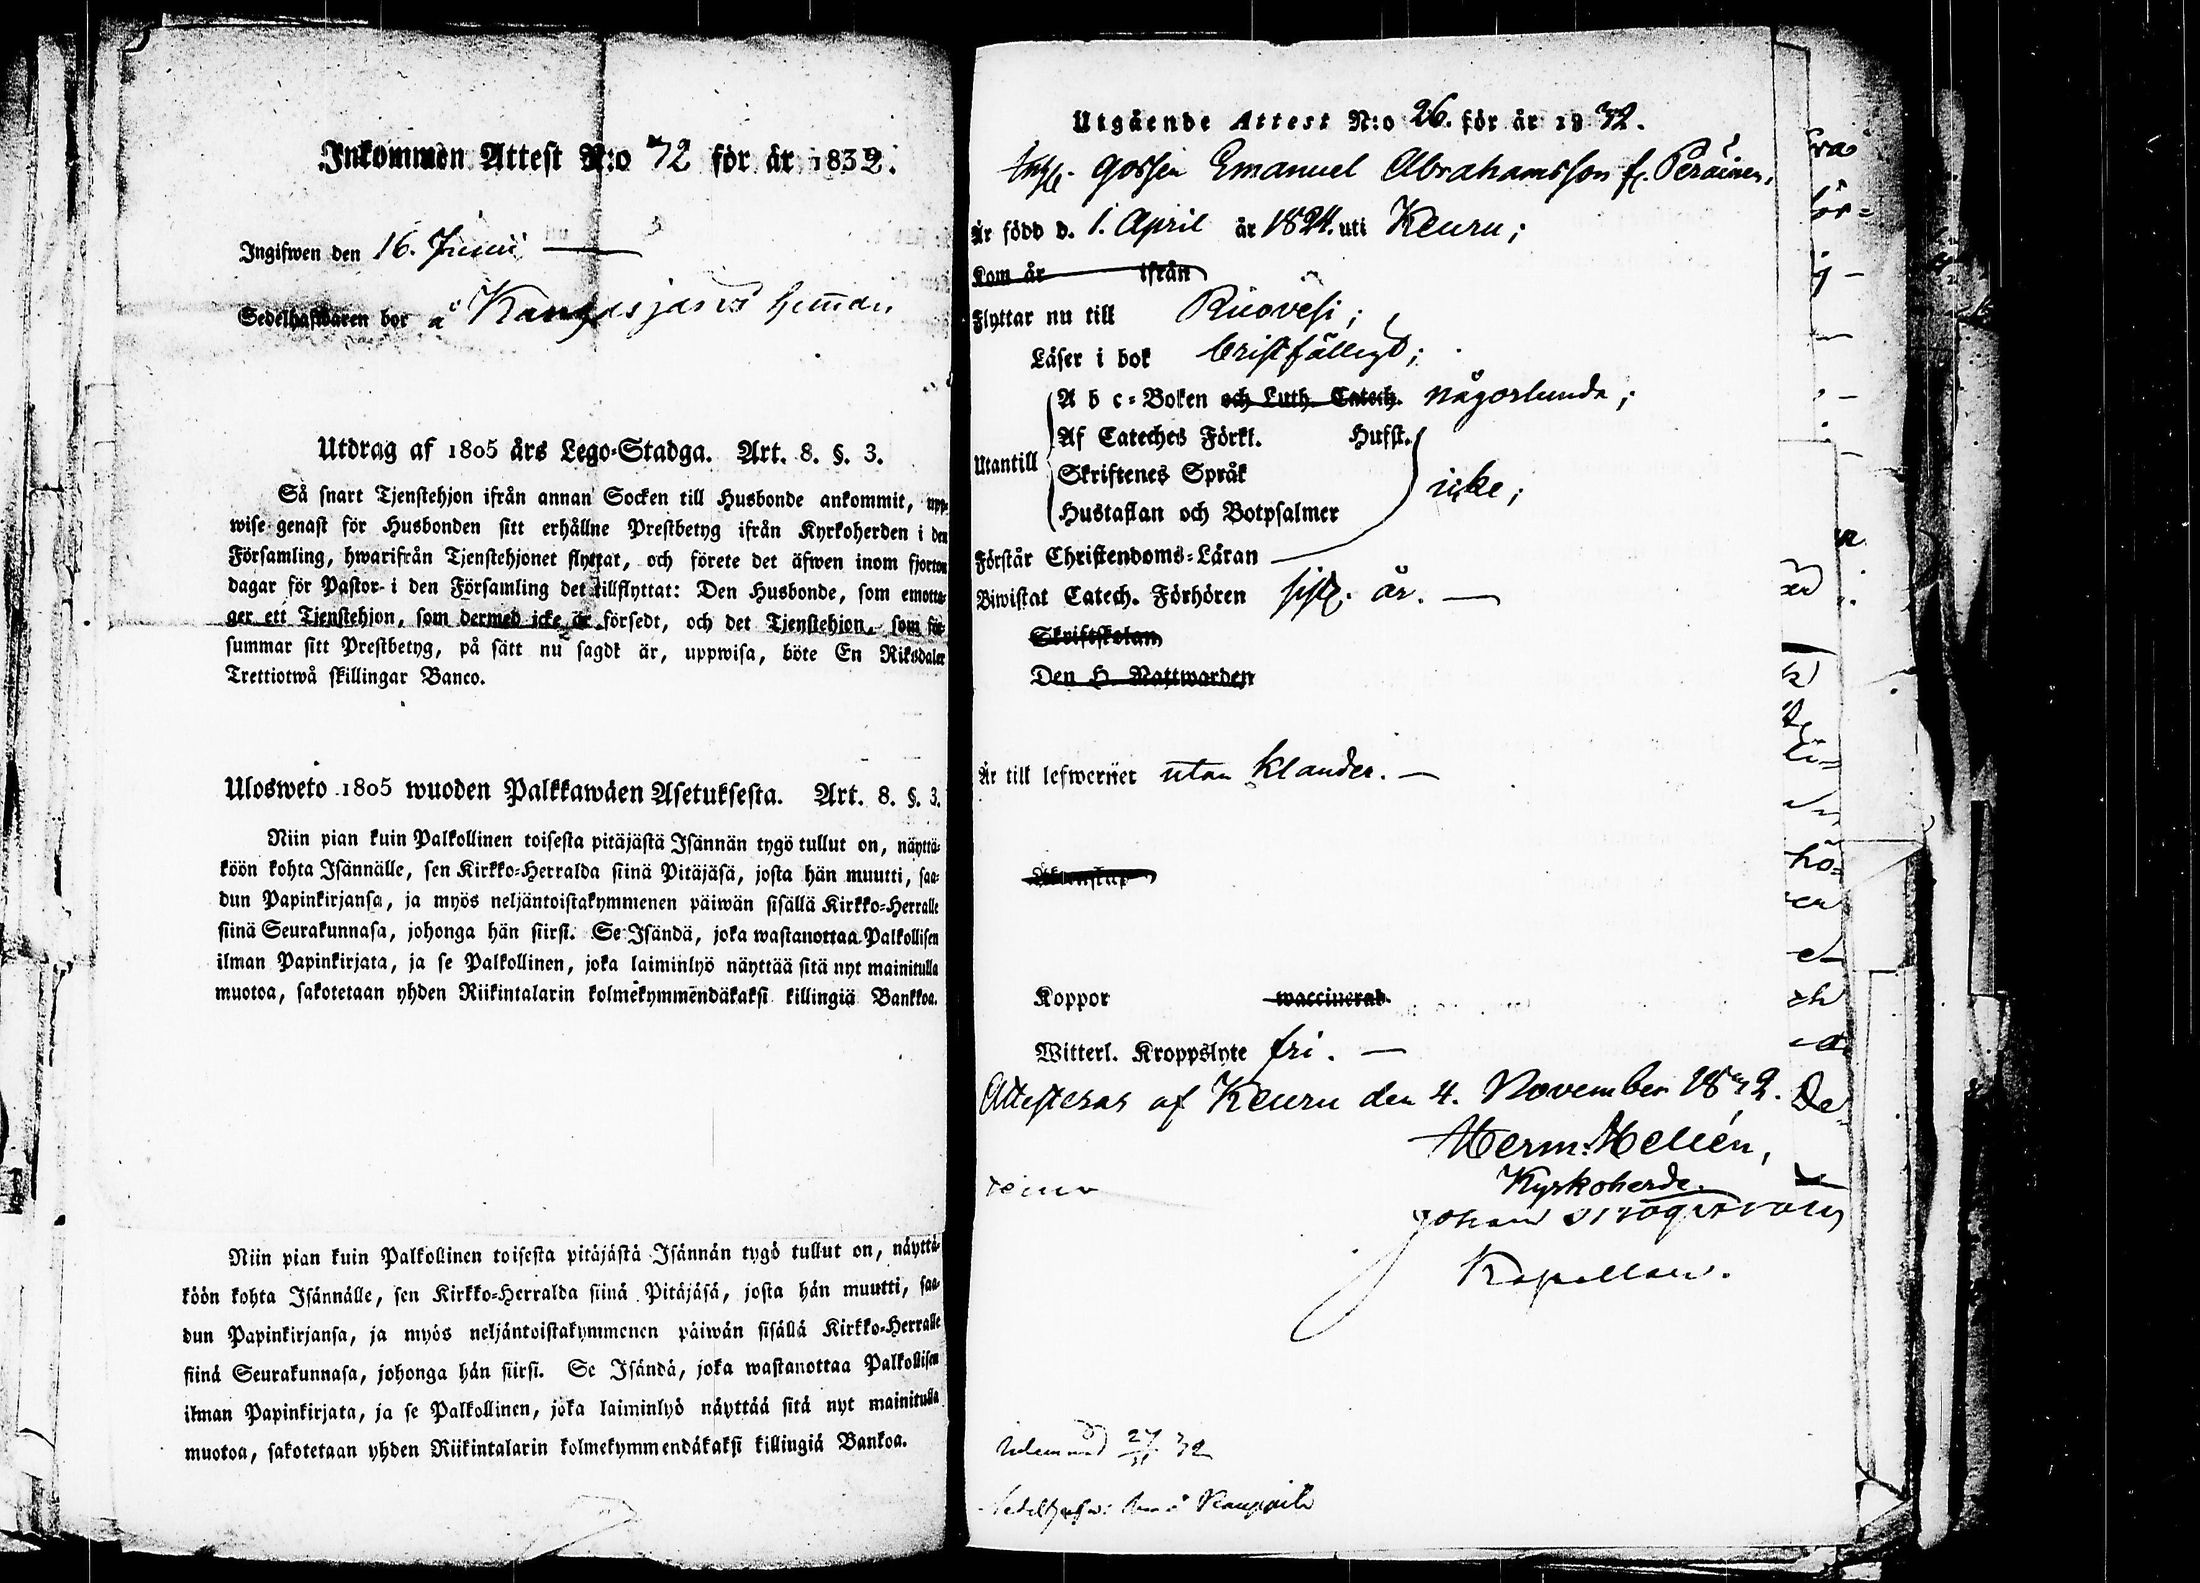 Inkommen Attest N:o 72 för år 1832.
Ingifwen den 16. Junii
Sedelhafwaren bor å Kangasjärvi hemman
Utdrag af 1805 års Lego-Stadga. Art. 8. §. 3.
Så snart Tjenstehjon ifrån annan Socken till Husbonde ankommit, upp-
wise genast för Husbonden sitt erhållne Prestbetyg ifrån Kyrkoherden i den
Församling, hwarifrån Tjenstehjonet flyttat, och förete det äfwen inom fjorton
dagar för Pastor i den Församling det tillflyttat: Den Husbonde, som emotta-
ger ett Tjenstehjon, som dermed icke är försedt, och det Tjenstehjon, som för-
summar sitt Prestbetyg, på sätt nu sagdt är, uppwisa, böte En Riksdaler
Trettiotwå skillingar Banco.
Ulosweto 1805 wuoden Palkkawäen Asetuksesta. Art. 8. §. 3.
Niin pian kuin Palkollinen toisesta pitäjästä Isännän tygö tullut on, näyttä-
köön kohta Isännälle, sen Kirkko-Herralda siinä Pitäjäsä, josta hän muutti, saa-
dun Papinkirjansa, ja myös neljäntoistakymmenen päiwän sisällä Kirkko-Herralle
siinä Seurakunnasa, johonga hän siirsi. Se Isändä, joka wastanottaa Palkollisen
ilman Papinkirjata, ja se Palkollinen, joka laiminlyö näyttää sitä nyt mainitulla
muotoa, sakotetaan yhden Riikintalarin kolmekymmendäkaksi killingiä Bankkoa.
Niin pian kuin Palkollinen toisesta pitäjästä Isännän tygö tullut on, näyttä-
köön kohta Isännälle, sen Kirkko-Herralda siinä Pitäjäsä, josta hän muutti, saa-
dun Papinkirjansa, ja myös neljäntoistakymmenen päiwän sisällä Kirkko-Herralle
siinä Seurakunnasa, johonga hän siirsi. Se Isändä, joka wastanottaa Palkollisen
ilman Papinkirjata, ja se Palkollinen, joka laiminlyö näyttää sitä nyt mainitulla
muotoa, sakotetaan yhden Riikintalarin kolmekymmendäkaksi killingiä Bankoa.
Utgående Attest N:o 26. för år 1832.
gossen Emanuel Abrahamsson fr. Peräinen,
Är född d. 1. April år 1824. uti Keuru;
Kom år ifrån
Flyttar nu till Ruovesi;
Läser i bok bristfälligt;
A b c-Boken och Luth. Catech. någorlunda;
Af Cateches Förkl. Hufst.
Utantill
Skriftenes Språk
icke;
Hustaflan och Botpsalmer
Förstår Christendoms-Läran
Biwistat Catech. Förhören sistl. år.
Skriftskolan
Den H. Nattwarden
Är till lefwernet utan klander.
Koppor waccinerad.
Witterl. Kroppslyte fri.
Attesteras af Keuru den 4. November 1832.
Herm: Mellén,
Kyrkoherde.
Johan
Kapellan.
27/11 32